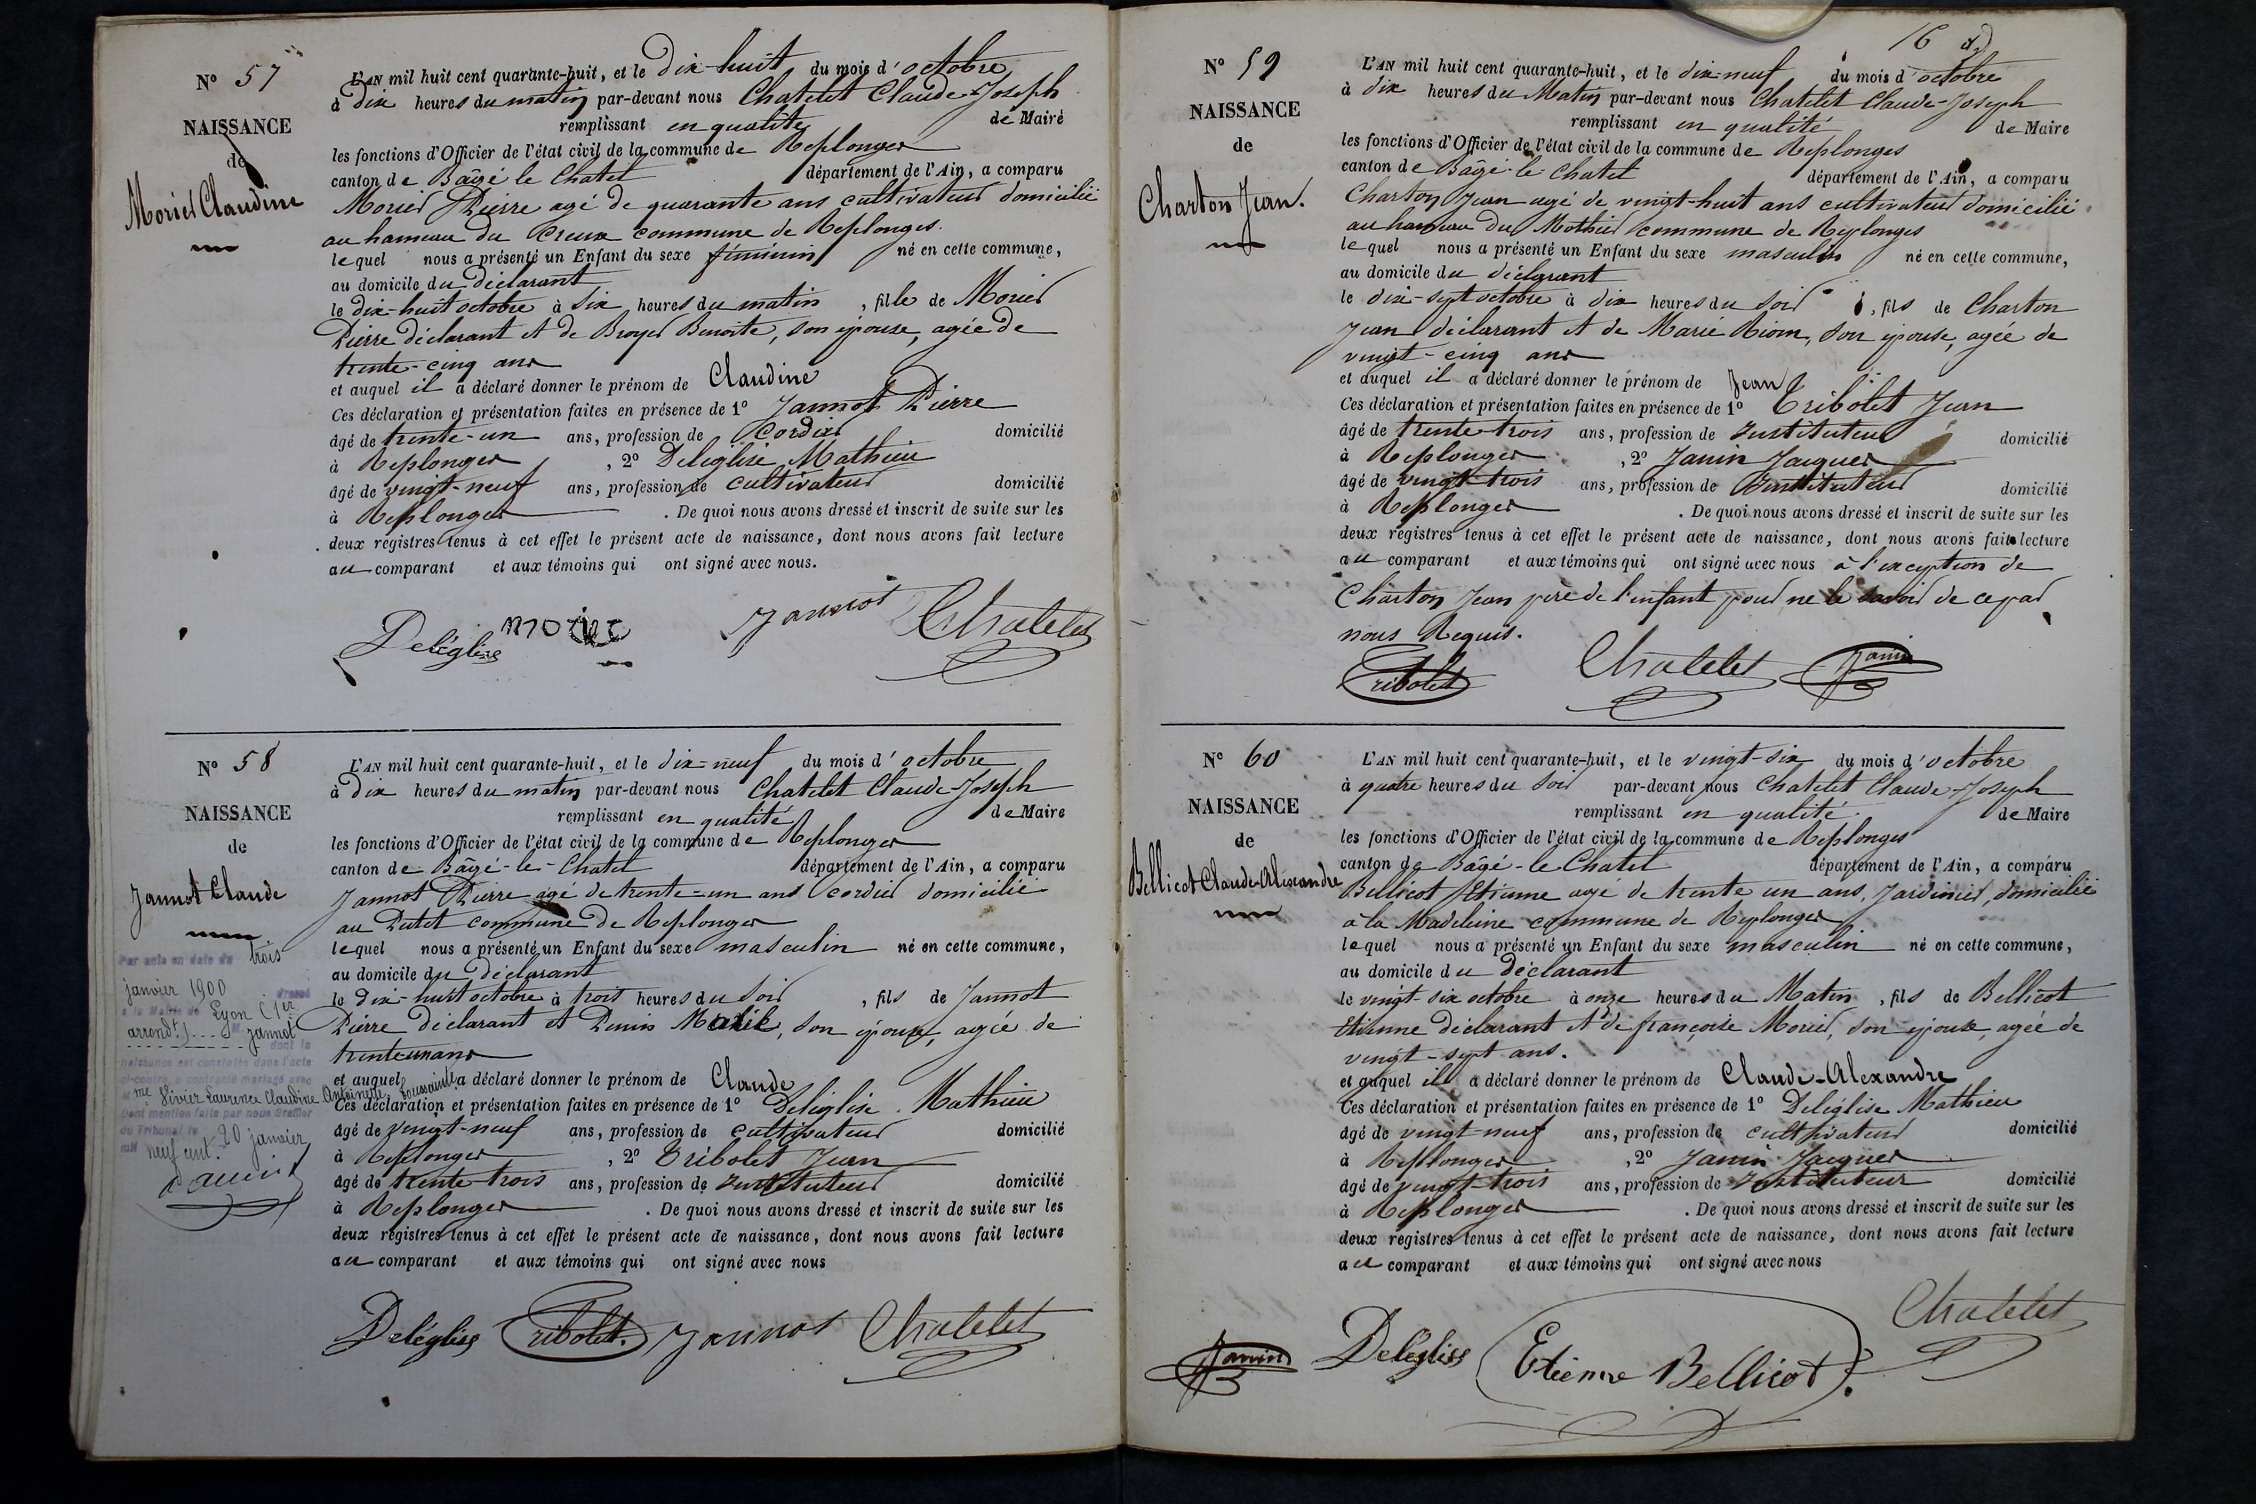 N° 57
NAISSANCE
de
Morier Claudine
L'AN mil huit cent quarante-huit, et le dix-huit du mois d'octobre
à dix heures du matin par-devant nous Chatelet Claude-Joseph
remplissant en qualité de Maire
les fonctions d'Officier de l'état civil de la commune de Replonges
canton de Bâgé le Chatel département de l'Ain, a comparu
Morier Pierre agé de quarante ans cultivateur domicilié
au hameau du Creux commune de Replonges.
lequel nous a présenté un Enfant du sexe féminin né en cette commune,
au domicile du déclarant
le dix-huit octobre à six heures du matin, fille de Morier
Pierre déclarant et de Broyer Benoite, son épouse, agée de
trente-cinq ans
et auquel il a déclaré donner le prénom de Claudine
Ces déclaration et présentation faites en présence de 1° Jannot Pierre
âgé de trente-un ans, profession de Cordier domicilié
à Replonges, 2° Deléglise Mathieu
âgé de vingt-neuf ans, profession de cultivateur domicilié
à Replonges. De quoi nous avons dressé et inscrit de suite sur les
deux registres tenus à cet effet le présent acte de naissance, dont nous avons fait lecture
au comparant et aux témoins qui ont signé avec nous.
Deléglise Jannot Chatelet
N° 58
NAISSANCE
de
Jannot Claude
Par acte en date du trois
janvier 1900 dressé
à la Mairie de Lyon (1er
arrondt) M Jannot
dont la
naissance est constatée dans l'acte
ci-contre a contracté mariage avec
Mme Vivier Laurence Claudine Antoinette Toussainte
Dont mention faite par nous Greffier
du Tribunal le 20 janvier
mil neuf cent.
L'AN mil huit cent quarante-huit, et le dix-neuf du mois d'octobre
à dix heures du matin par-devant nous Chatelet Claude-Joseph
remplissant en qualité de Maire
les fonctions d'Officier de l'état civil de la commune de Replonges
canton de Bâgé-le-Chatel département de l'Ain, a comparu
Jannot Pierre agé de trente-un ans cordier domicilié
au commune de Replonges
lequel nous a présenté un Enfant du sexe masculin né en cette commune,
au domicile du déclarant
le dix-huit octobre à trois heures du soir, fils de Jannot
Pierre déclarant et Penin Marie, son épouse, agée de
trente un ans
et auquel il a déclaré donner le prénom de Claude
Ces déclaration et présentation faites en présence de 1° Deléglise Mathieu
âgé de vingt-neuf ans, profession de cultivateur domicilié
à Replonges, 2° Tribolet Jean
âgé de trente-trois ans, profession de Instituteur domicilié
à Replonges. De quoi nous avons dressé et inscrit de suite sur les
deux registres tenus à cet effet le présent acte de naissance, dont nous avons fait lecture
au comparant et aux témoins qui ont signé avec nous
Deléglise Tribolet Jannot Chatelet
16
N° 59
NAISSANCE
de
Charton Jean.
L'AN mil huit cent quarante-huit, et le dix-neuf du mois d'octobre
à dix heures du Matin par-devant nous Chatelet Claude-Joseph
remplissant en qualité de Maire
les fonctions d'Officier de l'état civil de la commune de Replonges
canton de Bâgé-le-Chatel département de l'Ain, a comparu
Charton Jean agé de vingt-huit ans cultivateur domicilié
au hameau du Mothier commune de Replonges
lequel nous a présenté un Enfant du sexe masculin né en cette commune,
au domicile du déclarant
le dix-sept octobre à dix heures du soir, fils de Charton
Jean déclarant et de Marie Riom, son épouse, agée de
vingt-cinq ans
et auquel il a déclaré donner le prénom de Jean
Ces déclaration et présentation faites en présence de 1° Tribolet Jean
âgé de trente-trois ans, profession de Instituteur domicilié
à Replonges, 2° Janin Jacques
âgé de vingt-trois ans, profession de Instituteur domicilié
à Replonges. De quoi nous avons dressé et inscrit de suite sur les
deux registres tenus à cet effet le présent acte de naissance, dont nous avons fait lecture
au comparant et aux témoins qui ont signé avec nous à l'exception de
Charton Jean père de l'enfant pour ne le savoir de ce par
nous Requis.
Tribolet Chatelet Janin
N° 60
NAISSANCE
de
Bellicot Claude-Alexandre
L'AN mil huit cent quarante-huit, et le vingt-six du mois d'octobre
à quatre heures du soir par-devant nous Chatelet Claude-Joseph
remplissant en qualité de Maire
les fonctions d'Officier de l'état civil de la commune de Replonges
canton de Bâgé-le-Chatel département de l'Ain, a comparu
Bellicot Etienne agé de trente un ans, Jardinier, domicilié
à la Madeleine commune de Replonges
lequel nous a présenté un Enfant du sexe masculin né en cette commune,
au domicile du déclarant
le vingt-six octobre à onze heures du Matin, fils de Bellicot
Etienne déclarant et de françoise Morier, son épouse, agée de
vingt-sept ans.
et auquel il a déclaré donner le prénom de Claude-Alexandre
Ces déclaration et présentation faites en présence de 1° Deléglise Mathieu
âgé de vingt-neuf ans, profession de cultivateur domicilié
à Replonges, 2° Janin Jacques
âgé de vingt-trois ans, profession de Instituteur domicilié
à Replonges. De quoi nous avons dressé et inscrit de suite sur les
deux registres tenus à cet effet le présent acte de naissance, dont nous avons fait lecture
au comparant et aux témoins qui ont signé avec nous
Janin Deléglise Etienne Bellicot Chatelet